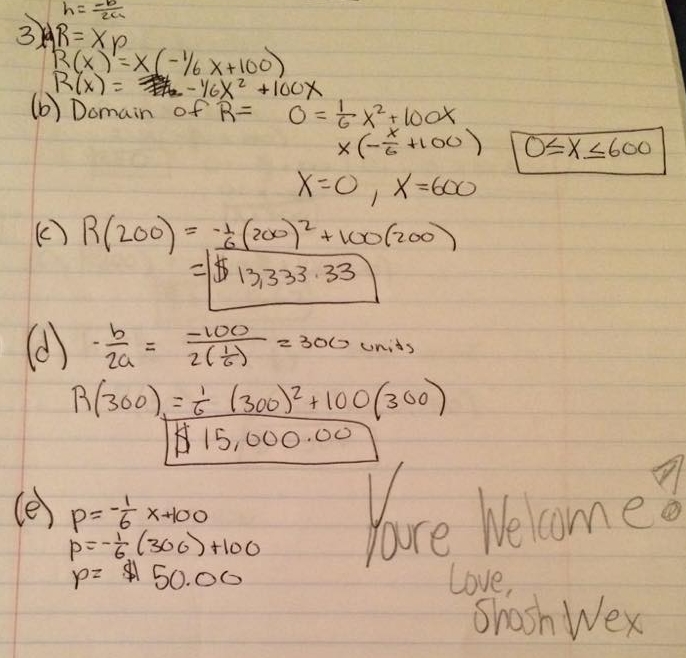 h = -b/2a
3) R = Xp
R(x) = x(-1/6 x+100)
R(x) = -1/6x² + 100x
(b) Domain of R= 0 = 1/6 x² + 100x
x(-x/6 +100) 0≤X≤600
X=0, X=600
(c) R(200) = -1/6 (200)² + 100(200)
= $ 13,333.33
(d) -b/2a = -100/2(1/6) = 300 units
R(300) = 1/6 (300)² + 100(300)
$ 15,000.00
(e) p= -1/6 x+100
p= -1/6 (300)+100
p= $ 50.00
Youre Welcome!
Love,
Shosh Wex